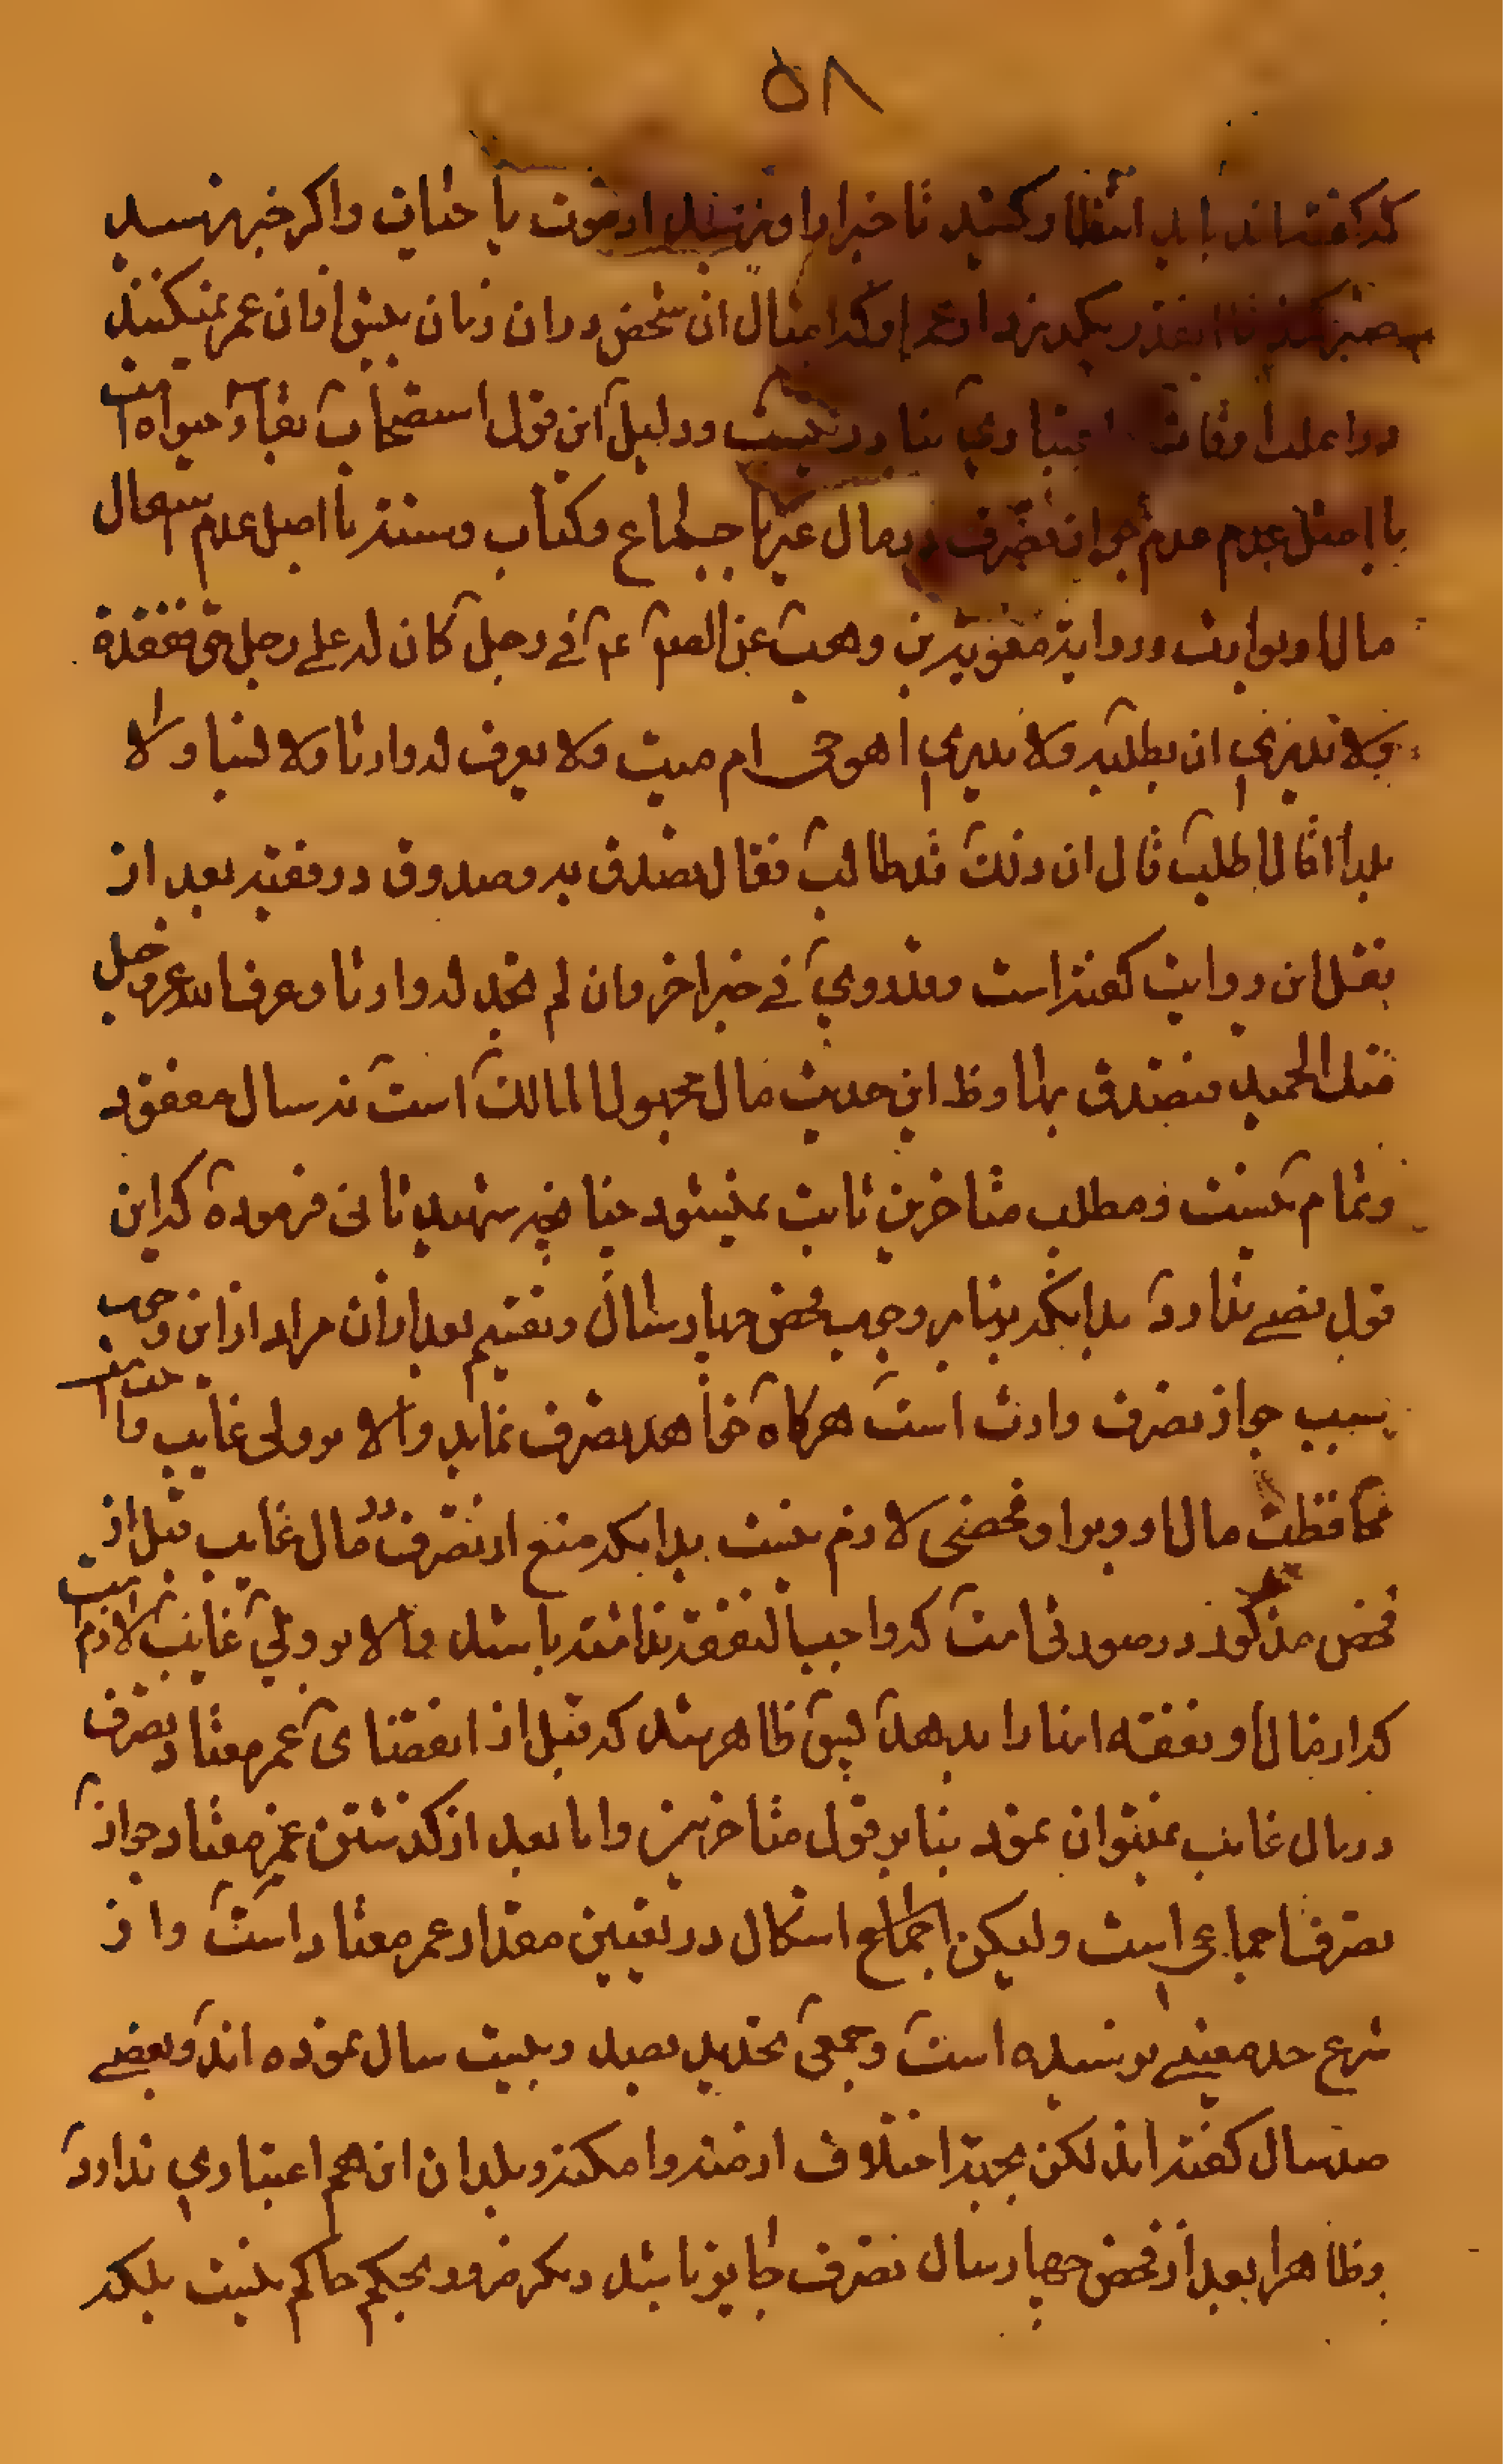 ۵۸
که گفته‌اند باید انتظار کشید تا خبر او برسد از موت یا حیات و اگر خبر نرسید
صبر کنند تا اینقدر بگذرد از عمر او که امثال ان شخص در ان زمان بیش از ان عمر نمیکنند
در اغلب اوقات اعتباری بنادر نیست و دلیل این قول استصحاب بقاء حیوة است
با اصل عدم جواز تصرف در مال غیر باجماع و کتاب و سنت با اصل عدم انتقال
مال او بوارث و روایة معویة بن وهب عن الصم ع۴ فی رجل کان له علی رجل حق ففقده
ولا یدری این یطلبه ولا یدری اهو حی ام میت ولا یعرف له وارثا ولا نسبا ولا
بلدا قال اطلب قال ان ذلک قد طال فقال تصدق به و صدوق در فقیه بعد از
نقل این روایت گفته است وقد روی فی خبر اخر وان لم تجد له وارثا و عرف الله عز وجل
منک الجهد فتصدق بها وظ این حدیث مال مجهول المالک است نه مال مفقود
و تمام نیست و مطلب متاخرین ثابت نمیشود چنانچه شهید ثانی فرموده که این
قول نصی ندارد بدانکه بنابر وجوب فحص چهار سال و تقسیم بعد از ان مراد از این وجوب
بسبب جواز تصرف وارث است هرگاه خواهد تصرف نماید والا بر ولی غایب و
محافظت مال او و برا و فحصی لازم نیست بدانکه منع از تصرف در مال غایب قبل از
فحص مذکور در صورتی است که واجب النفقه نداشته باشد والا بر ولی غایب لازم است
که از مال او نفقه اینا را بدهد پس ظاهر شد که قبل از انقضای عمر معتاد تصرف
در مال غایب نمیتوان نمود بنا بر قول متاخرین و اما بعد از گذشتن عمر معتاد جواز
تصرف اجماعی است ولیکن اجماع اشکال در تعیین مقدار عمر معتاد است و از
شرع حد معینی نرسیده است و جمعی تحدید بصد و بیست سال نموده اند و بعضی
صد سال گفته اند لکن بجهة اختلاف ازمنه و امکنه و بلدان این هم اعتباری ندارد
و ظاهرا بعد از فحص چهار سال تصرف جایز باشد دیگر ضرور بحکم حاکم نیست بلکه